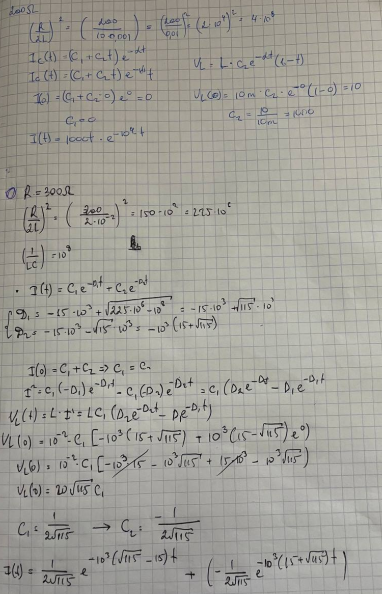 200Ω
(R/2L)² = (200/(10·0,001))² = (200/0,01)² = (2·10⁴)² = 4·10⁸
I_c(t) = (C₁ + C₂t) e^(-dt)
I_c(t) = (C₁ + C₂t) e^(-d₁t)
I(0) = (C₁ + C₂·0) e⁰ = 0
C₁ = 0
I(t) = 1000t · e^(-10⁴t)
V_L = L · C₂ e^(-dt) (1-t)
V_L(0) = 10m · C₂ · e^(-0) (1-0) = 10
C₂ = 10/10m = 1000
R = 300Ω
(R/2L)² = (300/(2·10⁻²))² = 150·10² = 225·10⁶
(1/LC) = 10⁸
• I(t) = C₁e^(-D₁t) + C₂e^(-D₂t)
D₁ = -15·10³ + √(225·10⁶ - 10⁸) = -15·10³ + √115·10³
D₂ = -15·10³ - √115·10³ = -10³(15+√115)
I(0) = C₁ + C₂ => C₁ = C₂
I' = C₁(-D₁)e^(-D₁t) - C₁(-D₂)e^(-D₂t) = C₁(D₂e^(-D₂t) - D₁e^(-D₁t))
V_L(t) = L · I' = LC₁(D₂e^(-D₂t) - D₁e^(-D₁t))
V_L(0) = 10⁻² C₁[-10³(15+√115) + 10³(15-√115)e⁰)
V_L(0) = 10⁻² · C₁[-10³·15 - 10³√115 + 15·10³ - 10³√115)
V_L(0) = 20√115 C₁
C₁ = 1/(2√115) → C₂ = -1/(2√115)
I(t) = 1/(2√115) e^(-10³(√115-15)t) + (-1/(2√115) e^(-10³(15+√115)t))